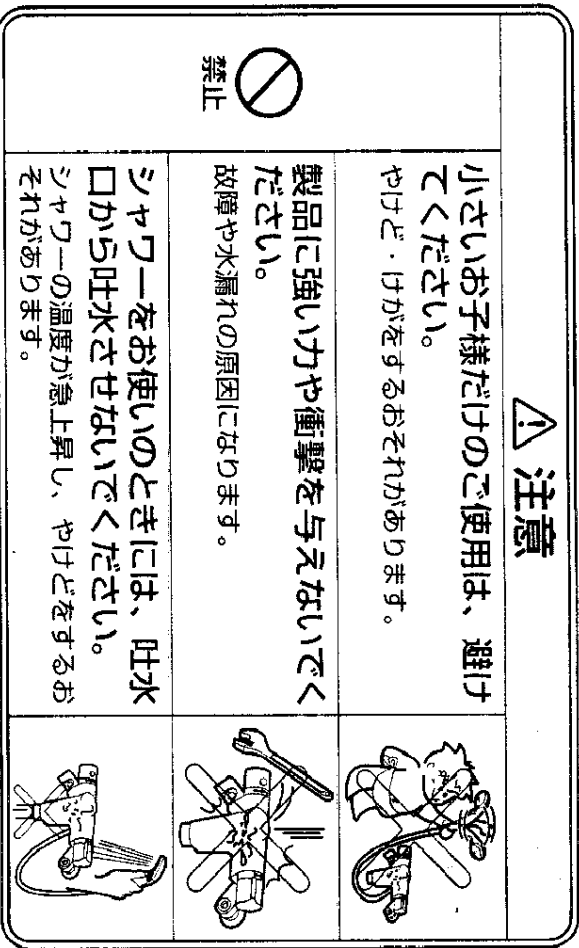 注意
禁止
小さいお子様だけのご使用は、避け
てください。
やけど・けがをするおそれがあります。
製品に強い力や衝撃を与えないでく
ださい。
故障や水漏れの原因になります。
シャワーをお使いのときには、吐水
口から吐水させないでください。
シャワーの温度が急上昇し、やけどをするお
それがあります。